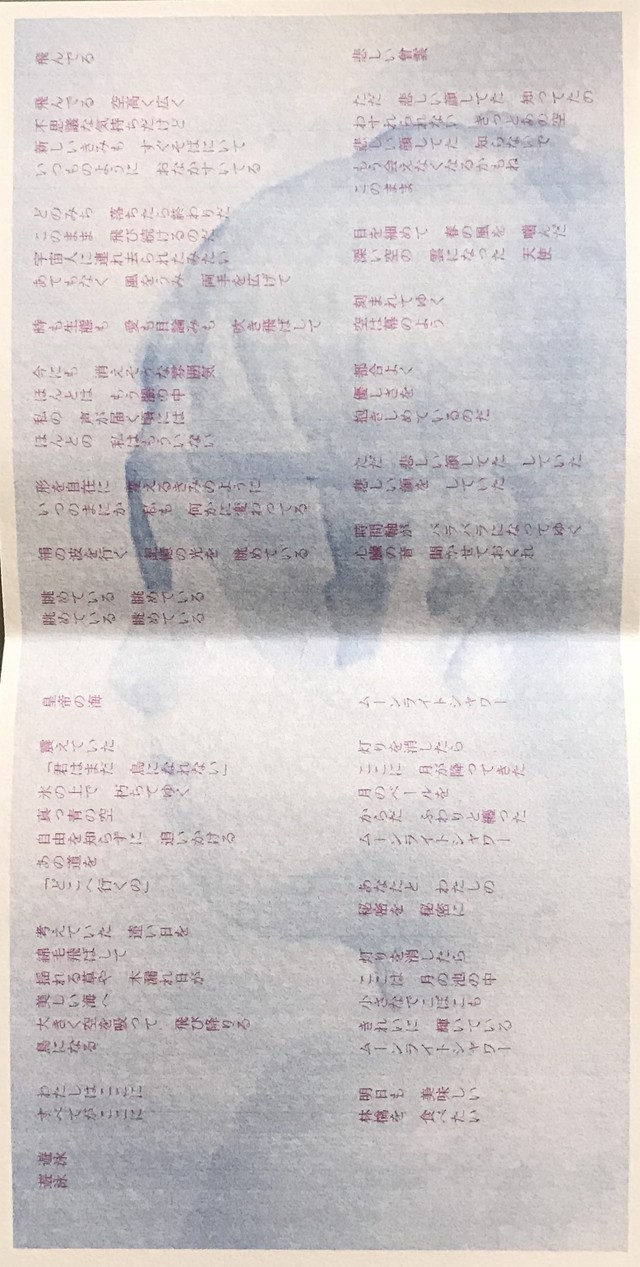 飛んでる
飛んでる 空高く広く
不思議な気持ちだけど
新しいきみも すぐそばにいて
いつものように おなかすいてる
どのみち 落ちたら終わりだ
このまま 飛び続けるのだ
宇宙人に連れ去られたみたい
あてもなく 風をうみ 両手を広げて
時も生態も 愛も目論みも 吹き飛ばして
今にも 消えそうな雰囲気
ほんとは もう闇の中
私の 声が届く頃には
ほんとの 私はもういない
形を自在に 変えるきみのように
いつのまにか 私も 何かに変わってる
絹の波を行く 記憶の光を 眺めている
眺めている 眺めている
眺めている 眺めている
悲しい
ただ 悲しい顔してた 知ってたの
わすれられない きっとあの空
悲しい顔してた 知らないで
もう会えなくなるかもね
このまま
目を細めて 春の風を 噛んだ
深い空の 雲になった 天使
刻まれてゆく
空は幕のよう
都合よく
優しさを
抱きしめているのだ
ただ 悲しい顔してた していた
悲しい顔を していた
時間軸が バラバラになってゆく
心臓の音 聞かせておくれ
皇帝の海
震えていた
「君はまだ 鳥になれない」
氷の上で 朽ちてゆく
真っ青の空
自由を知らずに 追いかける
あの道を
「どこへ行くの」
考えていた 遠い日を
綿毛飛ばして
揺れる草や 木漏れ日が
美しい海へ
大きく空を吸って 飛び降りる
鳥になる
わたしはここに
すべてがここに
遊泳
遊泳
ムーンライトシャワー
灯りを消したら
ここに 月が降ってきた
月のベールを
からだ ふわりと纏った
ムーンライトシャワー
あなたと わたしの
秘密を 秘密に
灯りを消したら
ここは 月の池の中
小さなでこぼこも
きれいに 輝いている
ムーンライトシャワー
明日も 美味しい
林檎を 食べたい